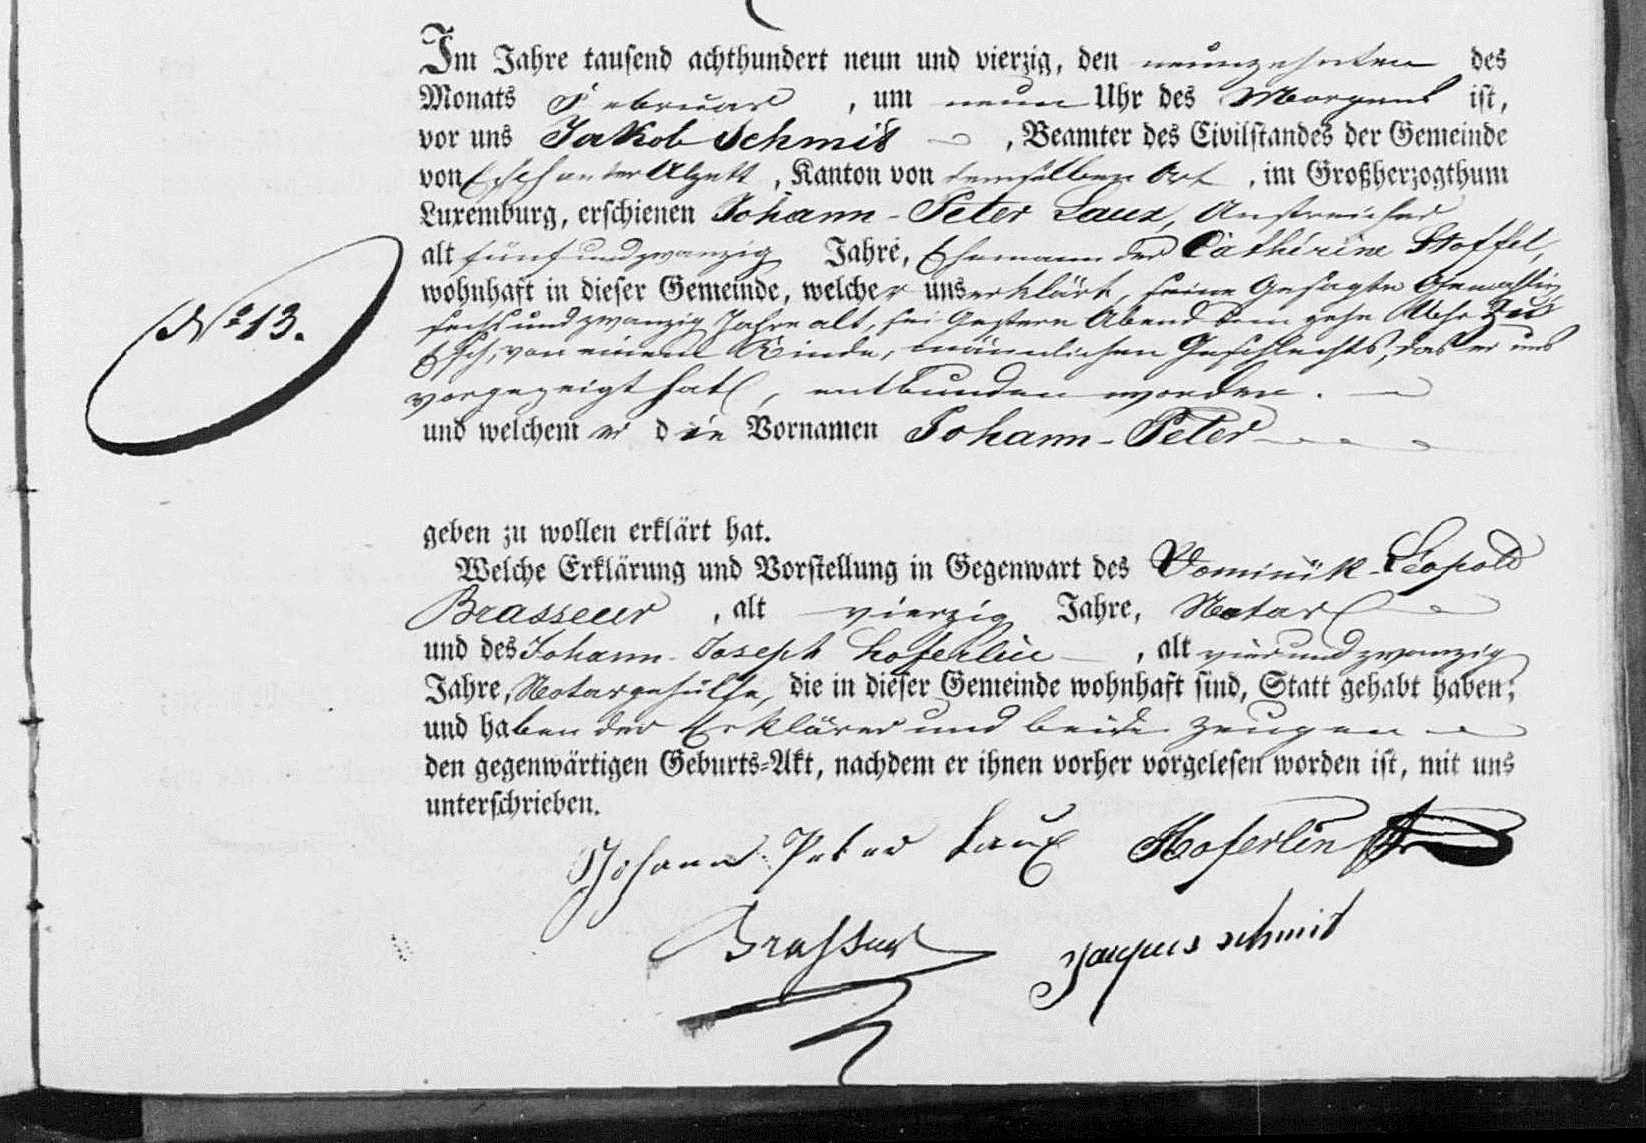 Im Jahre tausend achthundert neun und vierzig, den neunzehnten des
Monats Februar , um neun Uhr des Morgens ist,
vor uns Jakob Schmit , Beamter des Civilstandes der Gemeinde
von Esch an der Alzett , Kanton von demselben Ort , im Großherzogthum
Luxemburg, erschienen Johann-Peter Laux, Anstreicher
alt fünfundzwanzig Jahre, Ehemann der Cathérine Stoffel,
wohnhaft in dieser Gemeinde, welcher uns erklärt, seine Gesagte Gemahlin
sechsundzwanzig Jahre alt, sei Gestern Abend um zehn Uhr zu
Esch, von einem Kinde, männlichen Geschlechts, das er uns
vorgezeigt hat, entbunden worden.
No 13.
und welchem er die Vornamen Johann-Peter
geben zu wollen erklärt hat.
Welche Erklärung und Vorstellung in Gegenwart des Dominik-Leopold
Brasseur , alt vierzig Jahre, Notar
und des Johann-Joseph Hoferlin , alt vierundzwanzig
Jahre, Notargehülfe, die in dieser Gemeinde wohnhaft sind, Statt gehabt haben;
und haben der Erklärer und beide Zeugen
den gegenwärtigen Geburts-Akt, nachdem er ihnen vorher vorgelesen worden ist, mit uns
unterschrieben.
Johann Peter Laux Hoferlin
Brasseur Jacques schmit